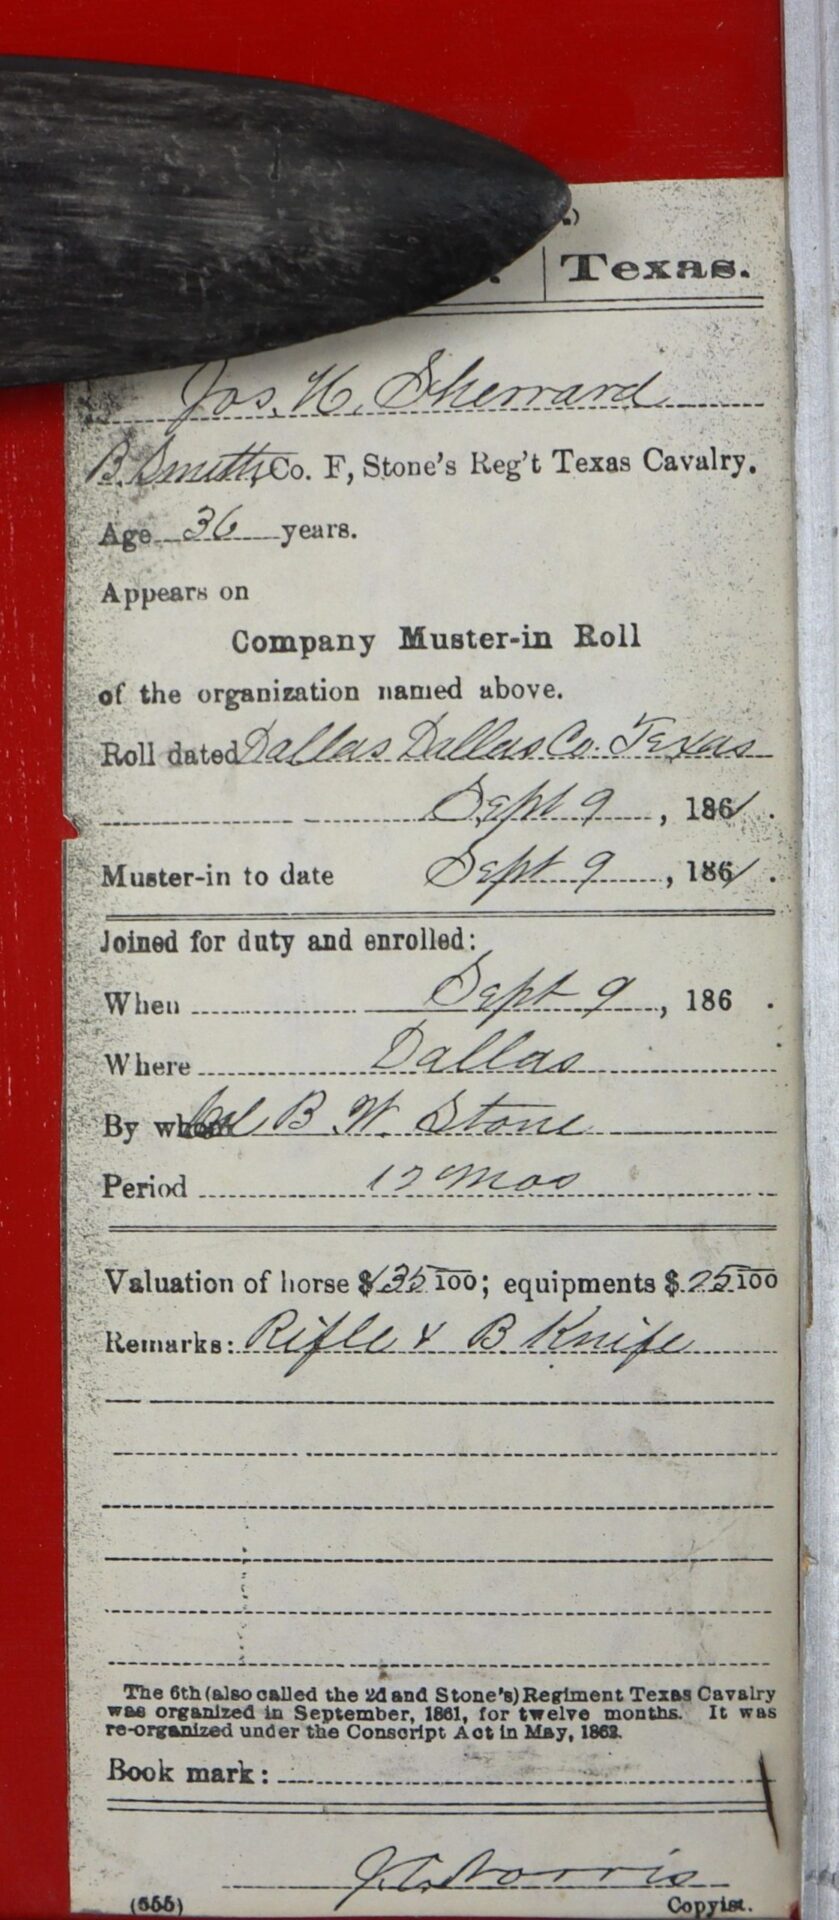 Texas.
Jos. H. Sherrard
B. Smith, Co. F, Stone's Reg't Texas Cavalry.
Age 36 years.
Appears on
Company Muster-in Roll
of the organization named above.
Roll dated Dallas Dallas Co. Texas
Sept 9, 1861.
Muster-in to date Sept 9, 1861.
Joined for duty and enrolled:
When Sept 9, 186 .
Where Dallas
By whom Col B. W. Stone
Period 12 Mos
Valuation of horse $135/100; equipments $25/100
Remarks: Rifle & B. Knife
The 6th (also called the 2d and Stone's) Regiment Texas Cavalry
was organized in September, 1861, for twelve months. It was
re-organized under the Conscript Act in May, 1862.
Book mark:
Norris
(555) Copyist.